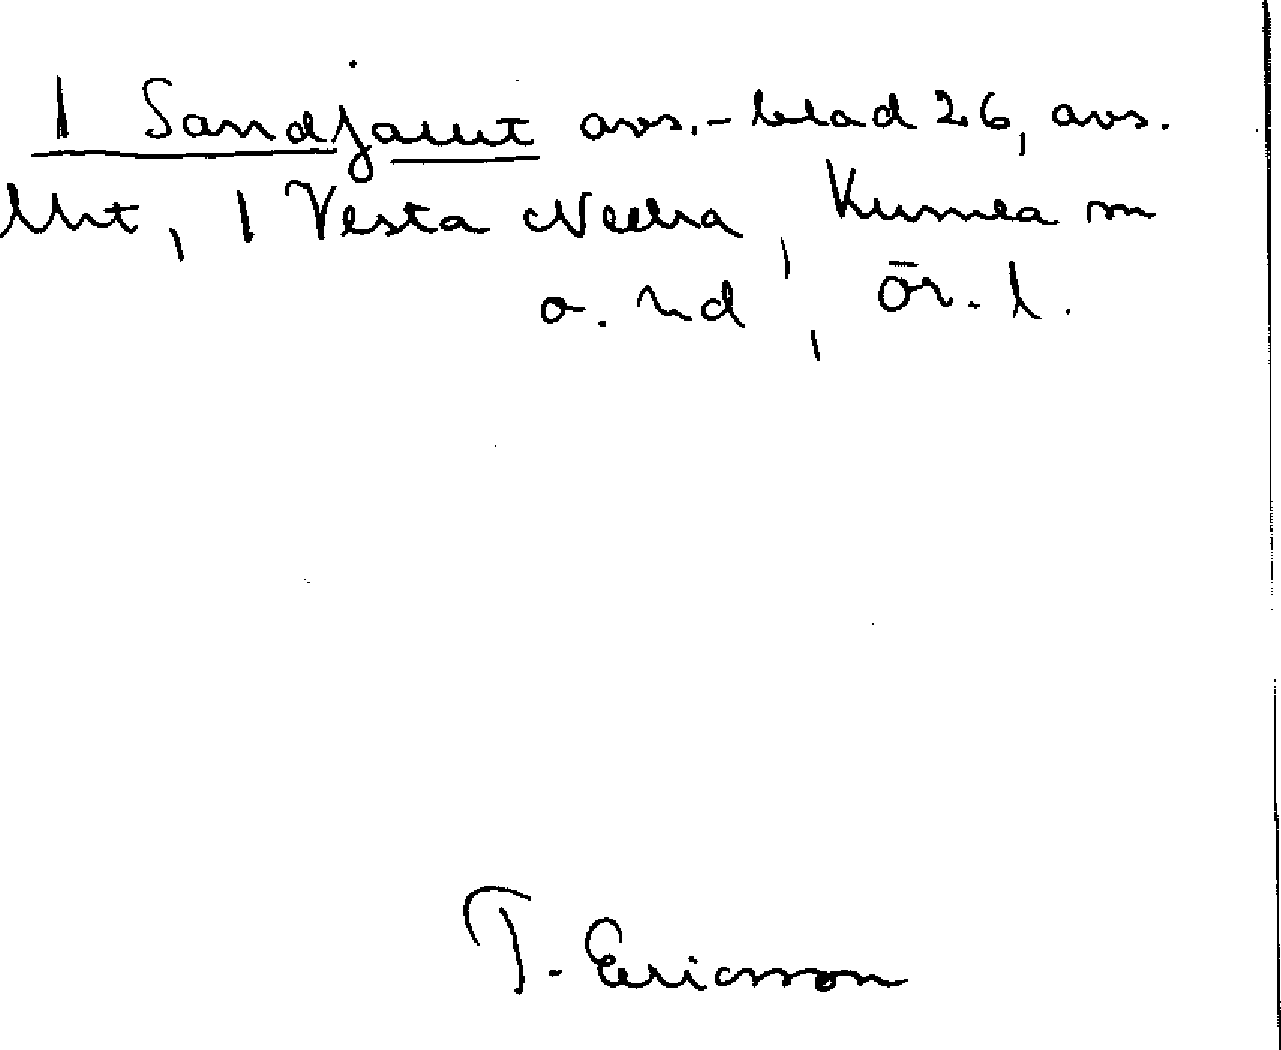 1 Sandjällt avs.-blad 26, avs.
Utt, 1 Västa Necka, Kumla sn
o. hd, Ör. l.
T. Ericsson